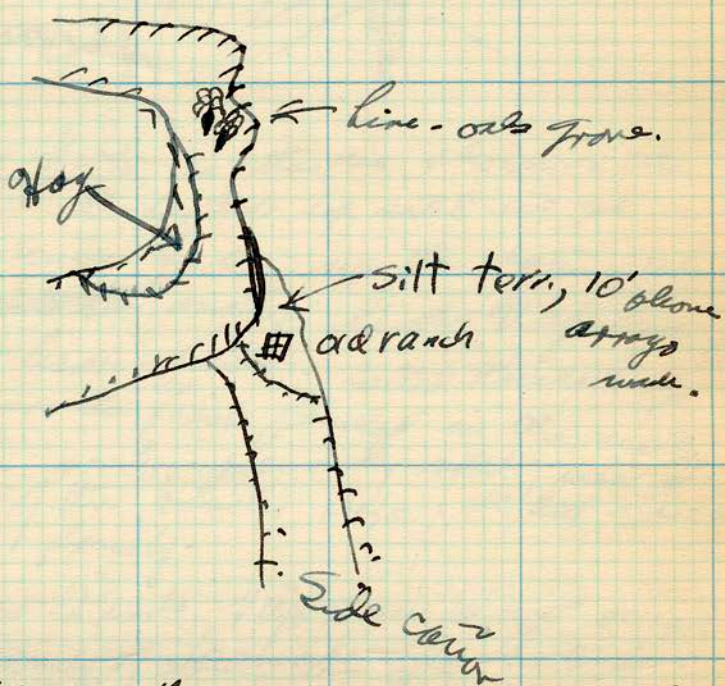 Live-oak grove.
Hog
silt terr., 10' above
arroyo
old ranch
Side cañon